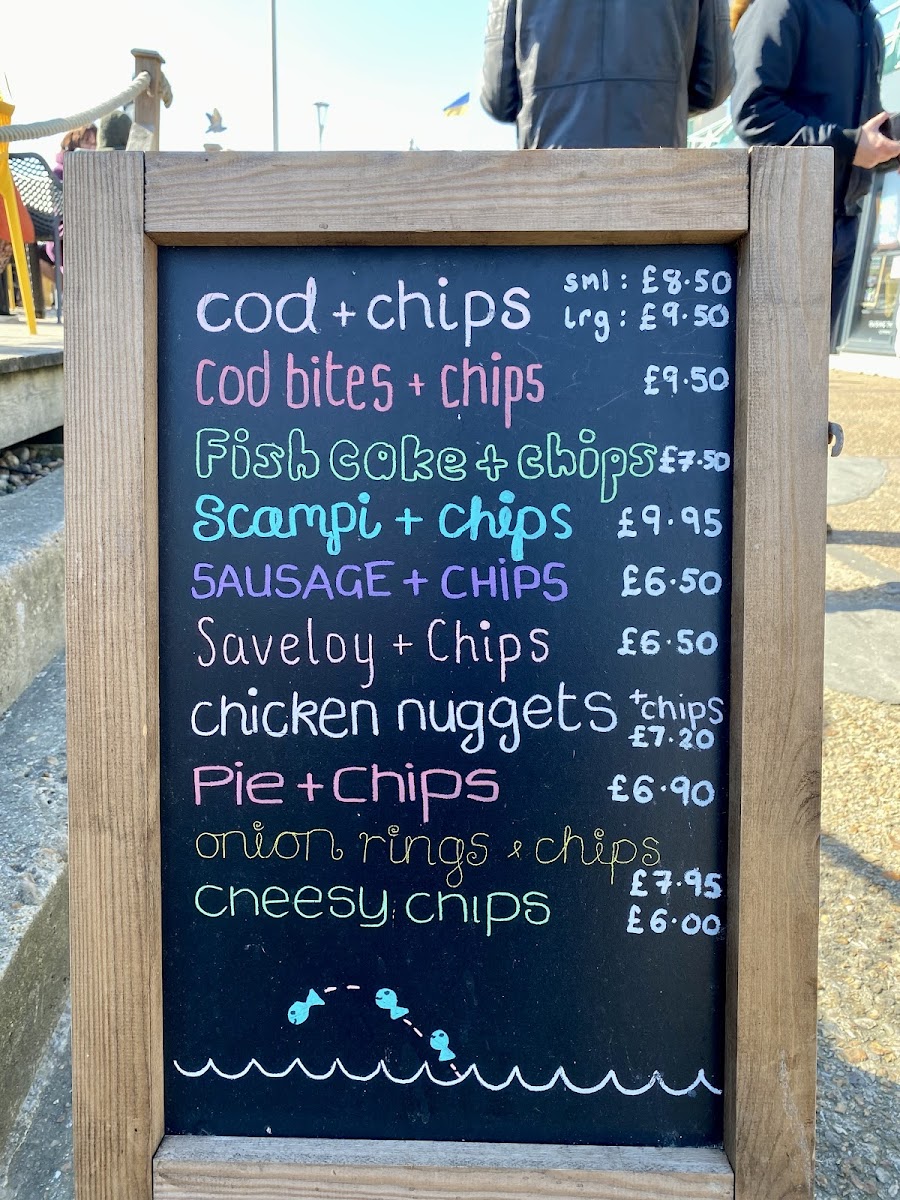 cod + chips sml : £8.50
lrg : £9.50
Cod bites + chips £9.50
Fish cake + chips £7.50
Scampi + chips £9.95
SAUSAGE + CHIPS £6.50
Saveloy + Chips £6.50
chicken nuggets + chips
£7.20
Pie + Chips £6.90
onion rings & chips
£7.95
cheesy chips £6.00